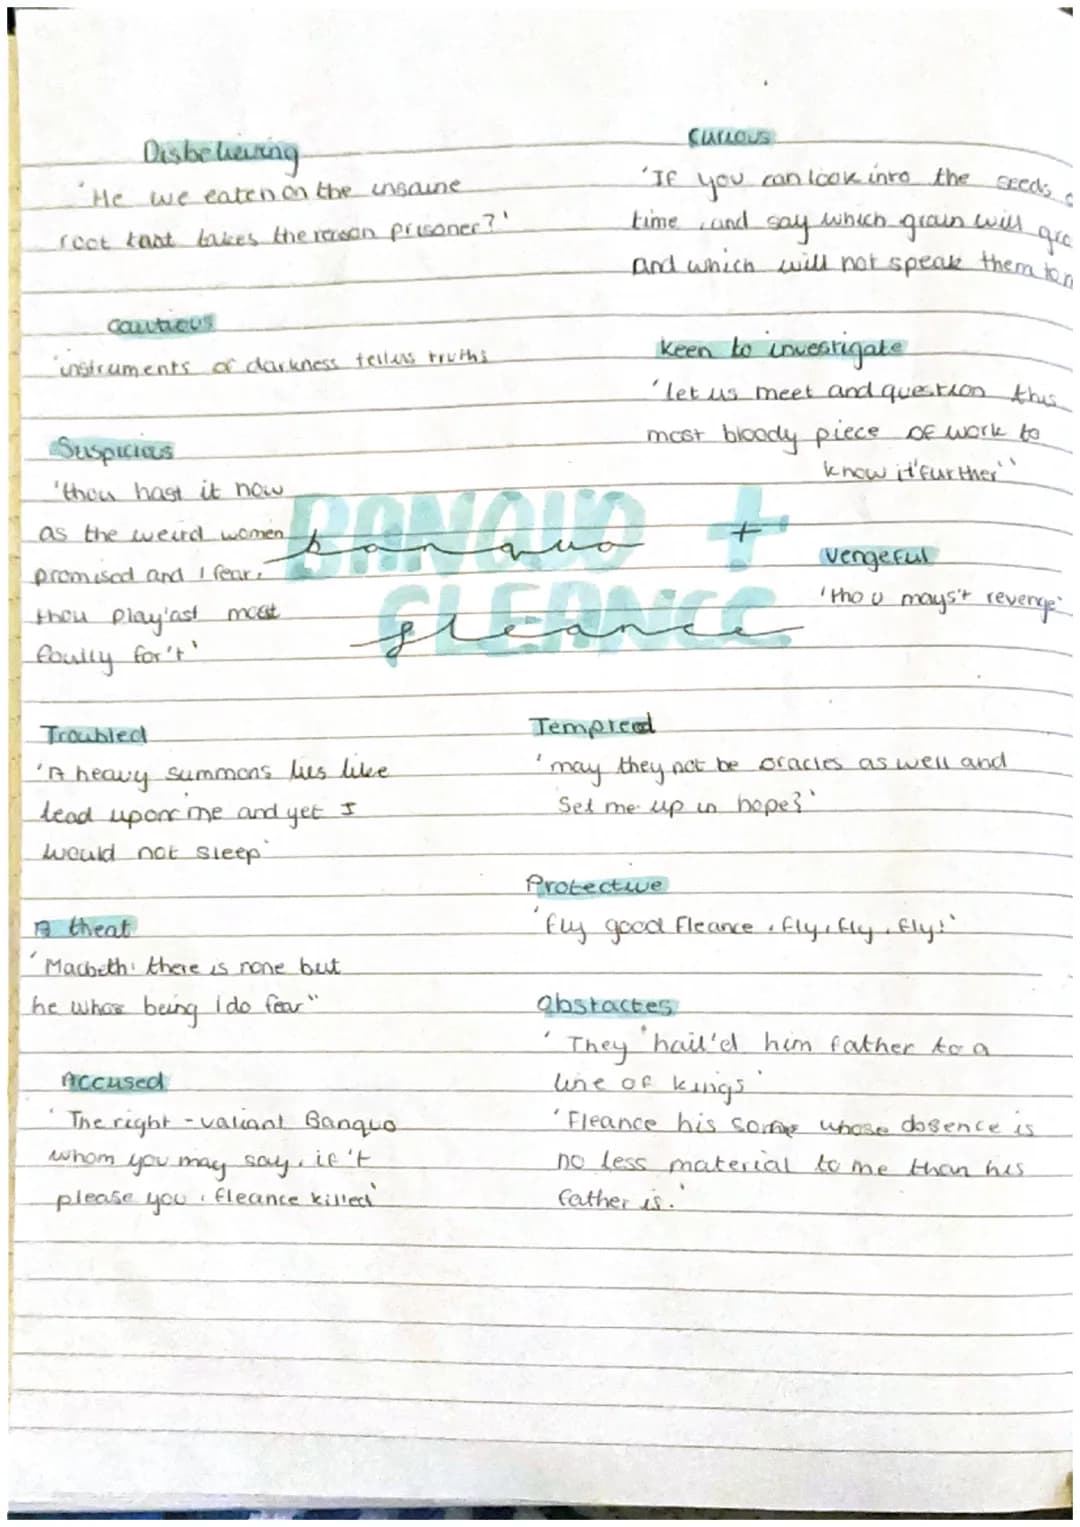 Disbelieving
'He we eaten on the insane
root taat takes the reason prisoner?'
Cautious
'instruments of darkness tell us truths
Suspicious
'thou hast it now
as the weird women
promised and I fear,
thou play'ast most
foully for't'
Troubled
'A heavy summons lies like
lead upon me and yet I
would not sleep'
A theat
'Macbeth: there is none but
he whos being I do fear"
Accused
'The right-valiant Banquo
whom you may say, if't
please you, fleance killed'
BANQUO +
banquo +
FLEANCE
fleance
Curious
'If you can look into the seeds
time, and say which grain will
and which will not speak them
keen to investigate
'let us meet and question this
most bloody piece of work to
know it further''
Vengeful
'thou mays't revenge'
Tempted
'may they not be oracles as well and
Set me up in hope?'
Protective
'fly good Fleance, fly, fly, fly!'
Obstacles
'They hail'd him father to a
line of kings'
'Fleance his whose absence is
no less material to me than his
father is.'